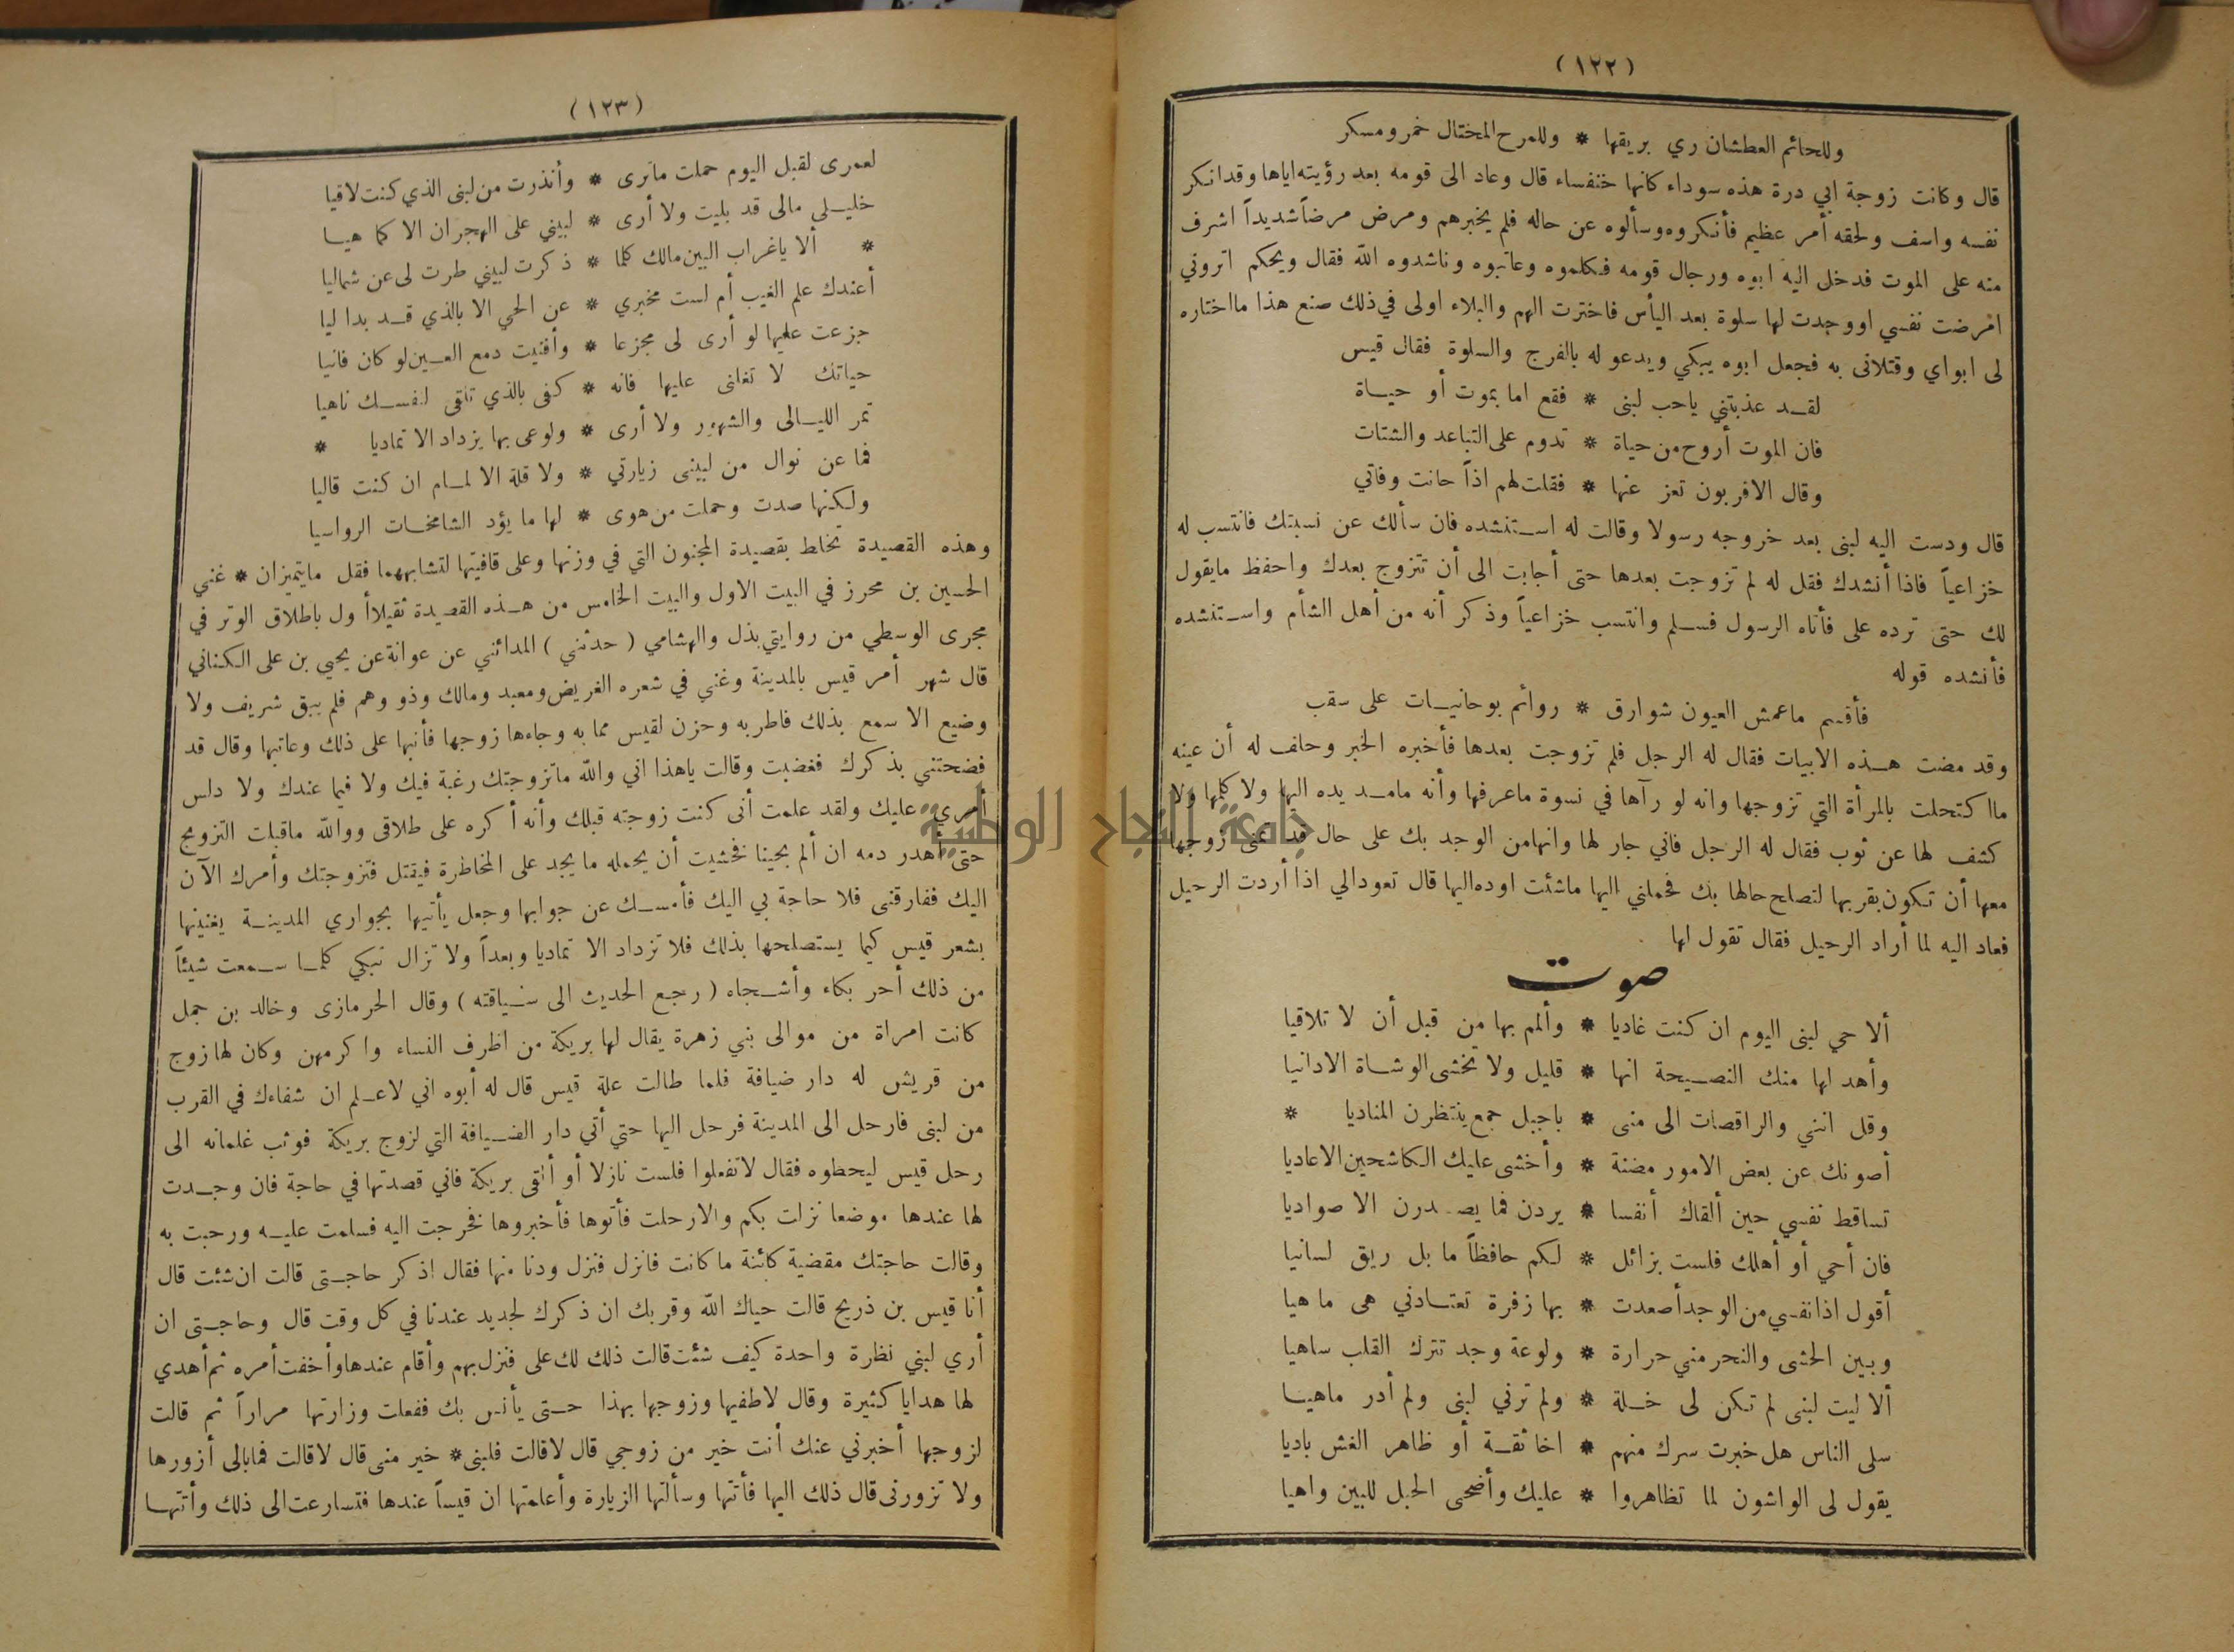 (١٢٢)
وللحائم العطشان ري بريقها * وللمرح المختال خمر ومسكر
قال وكانت زوجة ابي درة هذه سوداء كانها خنفساء قال وعاد الى قومه بعد رؤيته اياها وقد انكر
نفسه واسف ولحقه أمر عظيم فأنكروه وسألوه عن حاله فلم يخبرهم ومرض مرضاً شديداً اشرف
منه على الموت فدخل اليه ابوه ورجال قومه فكلموه وعاتبوه وناشدوه الله فقال ويحكم اتروني
امرضت نفسي او وجدت لها سلوة بعد اليأس فاخترت الهم والبلاء اولى في ذلك صنع هذا ما اختاره
لى ابواي وقتلانى به فجعل ابوه يبكي ويدعو له بالفرج والسلوة فقال قيس
لقد عذبتني ياحب لبنى * فقع اما بموت أو حياة
فان الموت أروح من حياة * تدوم على التباعد والشتات
وقال الاقربون تعز عنها * فقلت لهم اذاً حانت وفاتي
قال ودست اليه لبنى بعد خروجه رسولا وقالت له استنشده فان سألك عن نسبتك فانتسب له
خزاعياً فاذا أنشدك فقل له لم تزوجت بعدها حتى أجابت الى أن تتزوج بعدك واحفظ مايقول
لك حتى ترده على فأتاه الرسول فسلم وانتسب خزاعياً وذكر أنه من أهل الشأم واستنشده
فأنشده قوله
فأقسم ماعمش العيون شوارق * روائم بوحانيات على سقب
وقد مضت هذه الابيات فقال له الرجل فلم تزوجت بعدها فأخبره الخبر وحلف له أن عينه
مااكتحلت بالمرأة التي تزوجها وانه لو رآها في نسوة ماعرفها وأنه مامد يده اليها ولا كلمها ولا
كشف لها عن ثوب فقال له الرجل فاني جار لها وانها من الوجد بك على حال قد تمنى زوجها
معها أن تكون بقربها لتصلح حالها بك فحملني اليها ماشئت اوده اليها قال تعود الي اذا أردت الرحيل
فعاد اليه لما أراد الرحيل فقال تقول لها
صوت
ألا حي لبنى اليوم ان كنت غاديا * وألمم بها من قبل أن لا تلاقيا
وأهد لها منك النصيحة انها * قليل ولا تخشى الوشاة الادانيا
وقل انني والراقصات الى منى * باجبل جمع ينتظرن المناديا *
أصونك عن بعض الامور مضنة * وأخشى عليك الكاشحين الاعاديا
تساقط نفسي حين ألقاك أنفسا * يردن فما يصدرن الا صواديا
فان أحي أو أهلك فلست بزائل * لكم حافظاً ما بل ريق لسانيا
أقول اذا نفسي من الوجد أصعدت * بها زفرة تعتادني هى ماهيا
وبين الحشى والنحر مني حرارة * ولوعة وجد تترك القلب ساهيا
ألا ليت لبنى لم تكن لى خلة * ولم ترني لبنى ولم أدر ماهيا
سلى الناس هل خبرت سرك منهم * اخا ثقة أو ظاهر الغش باديا
يقول لى الواشون لما تظاهروا * عليك وأضحى الحبل للبين واهيا
(١٢٣)
لعمرى لقبل اليوم حملت ماترى * وأنذرت من لبنى الذي كنت لاقيا
خليلي مالى قد بليت ولا أرى * لبيني على الهجران الا كما هيا
* ألا ياغراب البين مالك كلما * ذكرت لبيني طرت لى عن شماليا
أعندك علم الغيب أم لست مخبري * عن الحي الا بالذي قد بدا ليا
جزعت عليها لو أرى لى مجزعا * وأفنيت دمع العين لو كان فانيا
حياتك لا تغلى عليها فانه * كفى بالذي تلقى لنفسك ناهيا
تمر الليالى والشهور ولا أرى * ولوعى بها يزداد الا تماديا *
فما عن نوال من لبينى زيارتي * ولا قلة الالمام ان كنت قاليا
ولكنها صدت وحملت من هوى * لها ما يؤد الشامخات الرواسيا
وهذه القصيدة تخلط بقصيدة المجنون التي في وزنها وعلى قافيتها لتشابههما فقل مايتميزان * غني
الحسين بن محرز في البيت الاول والبيت الخامس من هذه القصيدة ثقيلا أول باطلاق الوتر في
مجرى الوسطي من روايتي بذل والهشامي (حدثني) المدائني عن عوانة عن يحيي بن على الكناني
قال شهر أمر قيس بالمدينة وغني في شعره الغريض ومعبد ومالك وذو وهم فلم يبق شريف ولا
وضيع الا سمع بذلك فاطر به وحزن لقيس مما به وجاءها زوجها فأنبها على ذلك وعاتبها وقال قد
فضحتني بذكرك فغضبت وقالت ياهذا اني والله ماتزوجتك رغبة فيك ولا فيما عندك ولا دلس
أمري عليك ولقد علمت أنى كنت زوجته قبلك وأنه أكره على طلاقى ووالله ماقبلت التزويج
حتى أهدر دمه ان ألم بحينا فخشيت أن يحمله ما يجد على المخاطرة فيقتل فتزوجتك وأمرك الآن
اليك ففارقنى فلا حاجة بي اليك فأمسك عن جوابها وجعل يأتيها بجواري المدينة يغنينها
بشعر قيس كيما يستصلحها بذلك فلا تزداد الا تماديا وبعداً ولا تزال تبكي كلما سمعت شيئاً
من ذلك أحر بكاء وأشجاه (رجع الحديث الى سياقته) وقال الحرمازى وخالد بن جمل
كانت امراة من موالى بني زهرة يقال لها بريكة من اظرف النساء واكرمهن وكان لها زوج
من قريش له دار ضيافة فلما طالت علة قيس قال له أبوه اني لاعلم ان شفاءك في القرب
من لبنى فارحل الى المدينة فرحل اليها حتي أتي دار الضيافة التي لزوج بريكة فوثب غلمانه الى
رحل قيس ليحطوه فقال لاتفعلوا فلست نازلا أو ألقى بريكة فاني قصدتها في حاجة فان وجدت
لها عندها موضعا نزلت بكم والا رحلت فأتوها فأخبروها فخرجت اليه فسلمت عليه ورحبت به
وقالت حاجتك مقضية كائنة ماكانت فانزل فنزل ودنا منها فقال اذكر حاجتى قالت ان شئت قال
أنا قيس بن ذريح قالت حياك الله وقربك ان ذكرك لجديد عندنا في كل وقت قال وحاجتى ان
أري لبني نظارة واحدة كيف شئت قالت ذلك لك على فنزل بهم وأقام عندها وأخفت أمره ثم أهدي
لها هدايا كثيرة وقال لاطفيها وزوجها بهذا حتى يأنس بك ففعلت وزارتها مراراً ثم قالت
لزوجها أخبرني عنك أنت خير من زوجي قال لا قالت فلبنى * خير منى قال لا قالت فمابالى أزورها
ولا تزورنى قال ذلك اليها فأتتها وسألتها الزيارة وأعلمتها ان قيساً عندها فتسارعت الى ذلك وأتتها
جامعة النجاح الوطنية